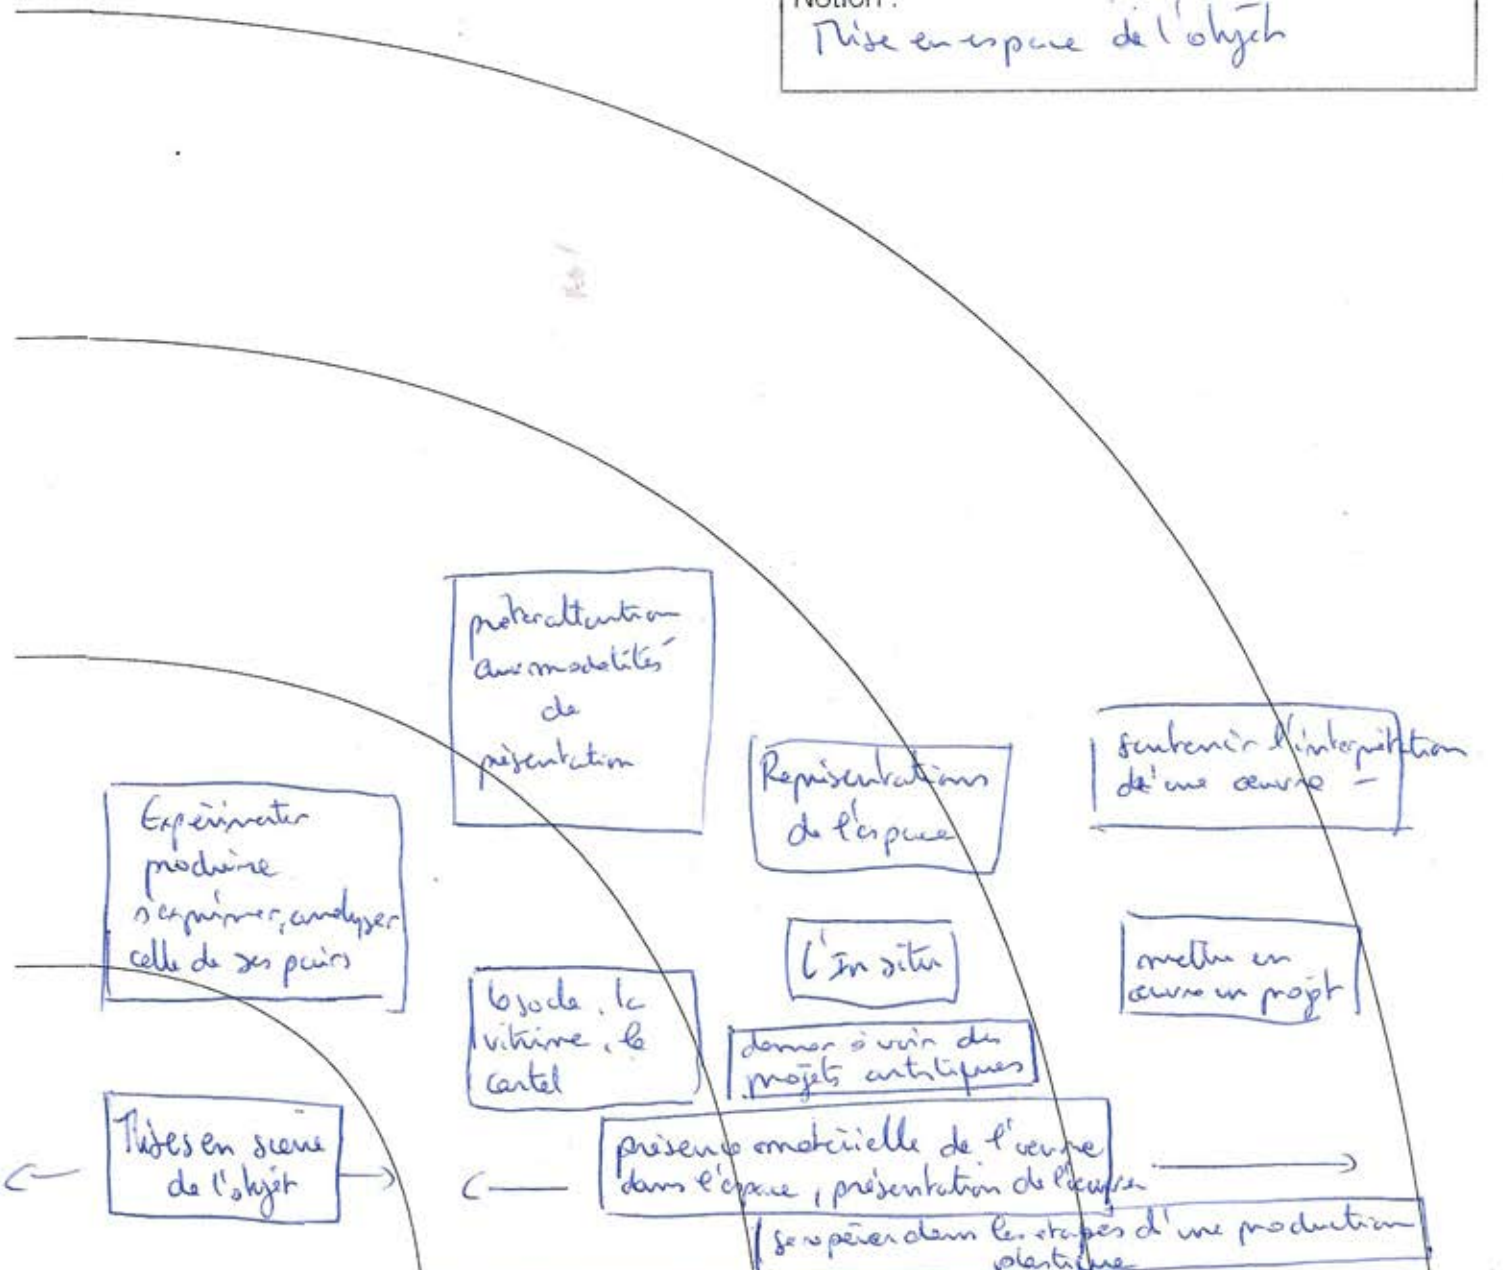 Notion :
Mise en espace de l'objet
prêter attention
aux modalités
de
présentation
Représentations
de l'espace
soutenir l'interprétation
de une œuvre -
Expérimenter
produire
s'exprimer, analyser
celle de ses pairs
l'In situ
mettre en
œuvre un projet
le socle, la
vitrine, le
cartel
donner à voir des
projets artistiques
Mises en scène
de l'objet
présence matérielle de l'œuvre
dans l'espace, présentation de l'œuvre
se repérer dans les étapes d'une production
plastique